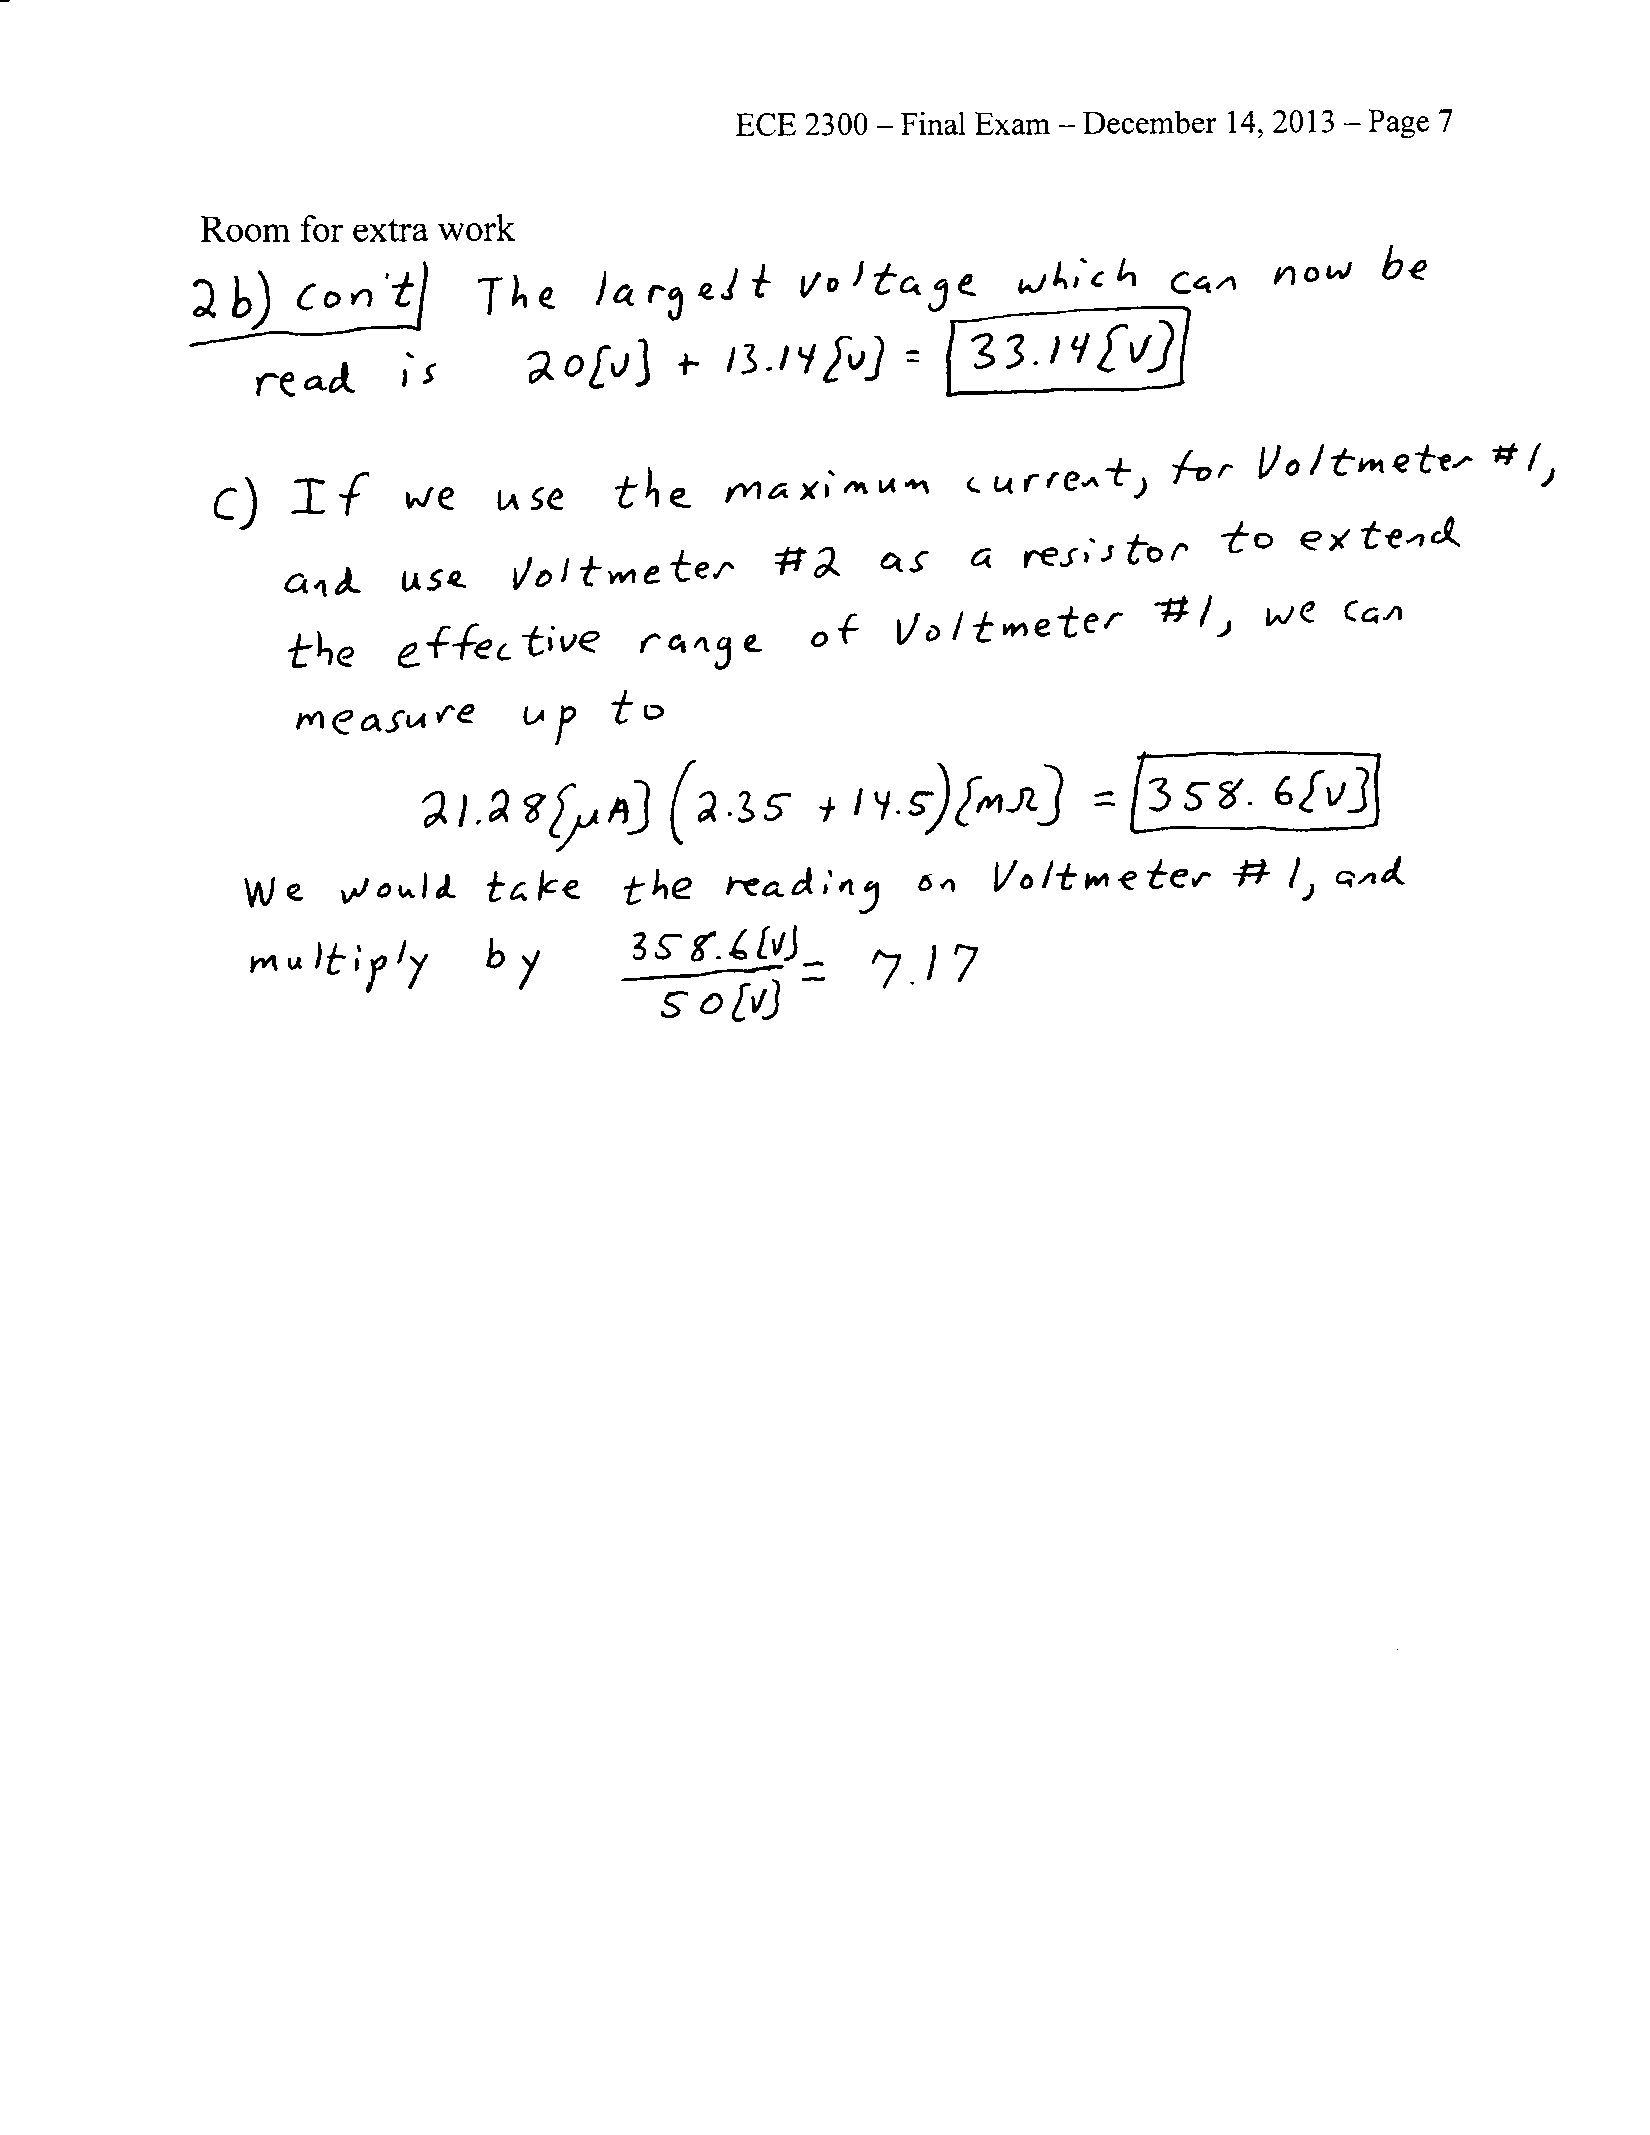 ECE 2300 – Final Exam – December 14, 2013 – Page 7
Room for extra work
2b) con't The largest voltage which can now be
read is 20[V] + 13.14[V] = 33.14[V]
c) If we use the maximum current, for Voltmeter #1,
and use Voltmeter #2 as a resistor to extend
the effective range of Voltmeter #1, we can
measure up to
21.28[μA](2.35 + 14.5)[MΩ] = 358.6[V]
We would take the reading on Voltmeter #1, and
multiply by 358.6[V]/50[V] = 7.17